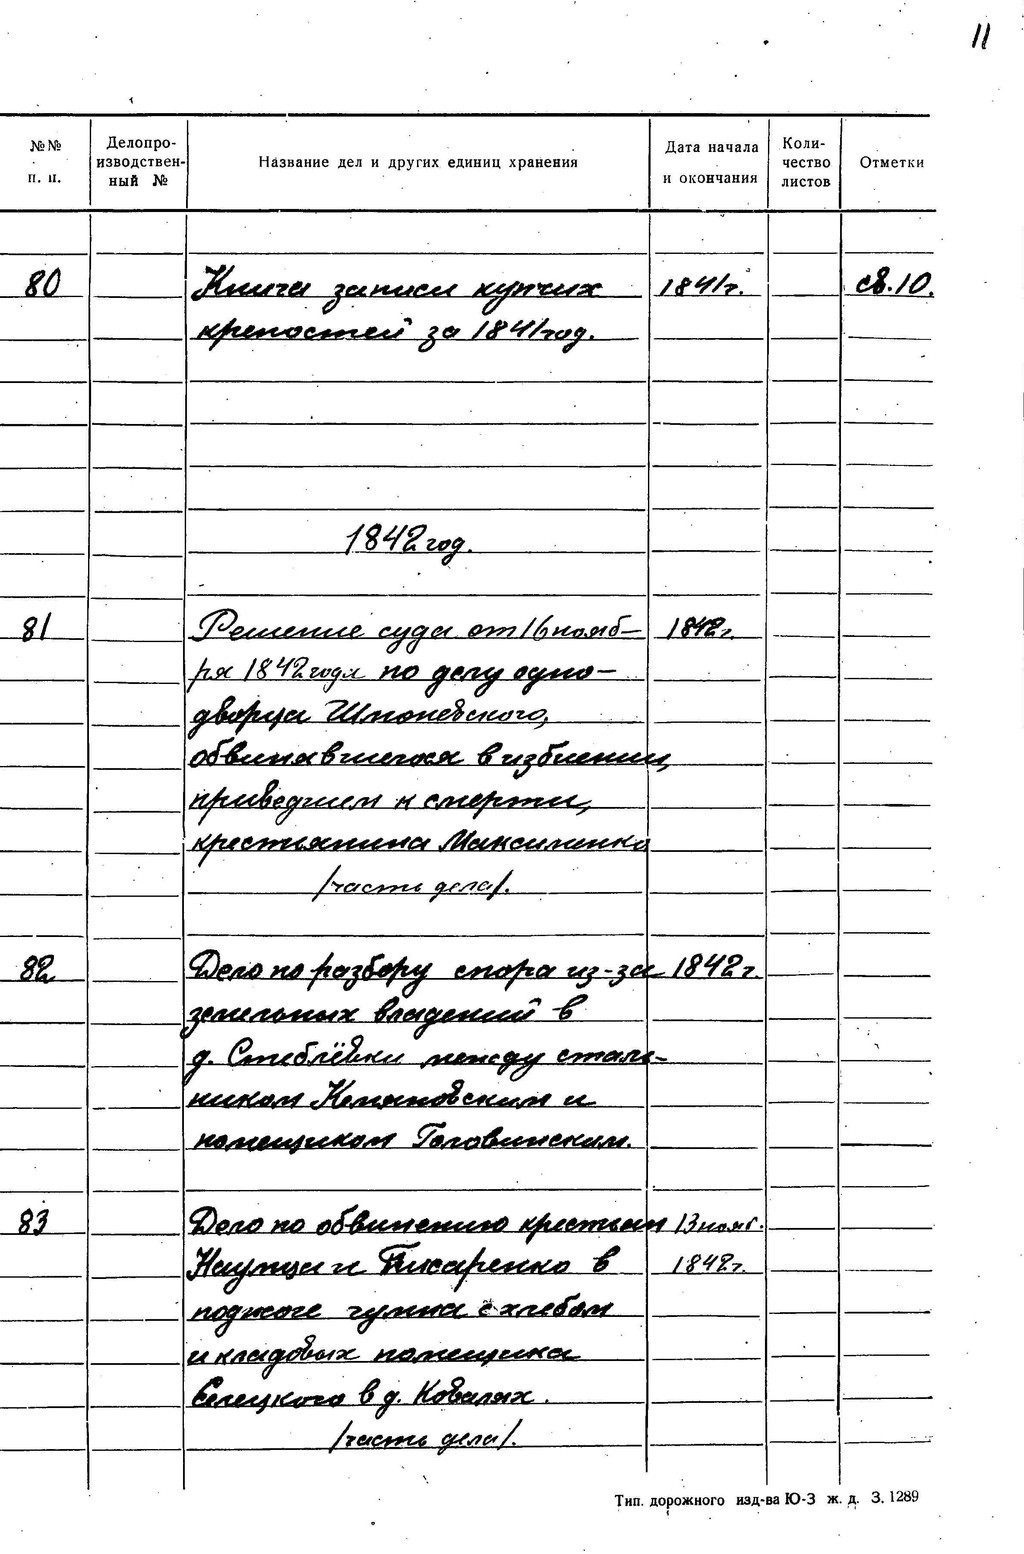 11
№№ п. п. Делопро- изводствен- ный № Название дел и других единиц хранения Дата начала и окончания Коли- чество листов Отметки
80 Книга записи купчих 1841г. св.10.
крепостей за 1841 год.
1842 год.
81 Решение суда от 16 нояб- 1842г.
ря 1842 года по делу одно-
дворца Шпоневского,
обвинявшегося в избиении,
приведшем к смерти,
крестьянина Максименко
/часть дела/.
82 Дело по разбору спора из-за 1842г.
земельных владений в
д. Стеблёвки между
и
помещиком Головинским.
83 Дело по обвинению крестьян 13 нояб.
Наумца и Писаренко в 1842г.
поджоге гумна с хлебом
и кладовых помещика
Селецкого в д. Ковалях.
/часть дела/.
Тип. дорожного изд-ва Ю-З ж. д. З. 1289